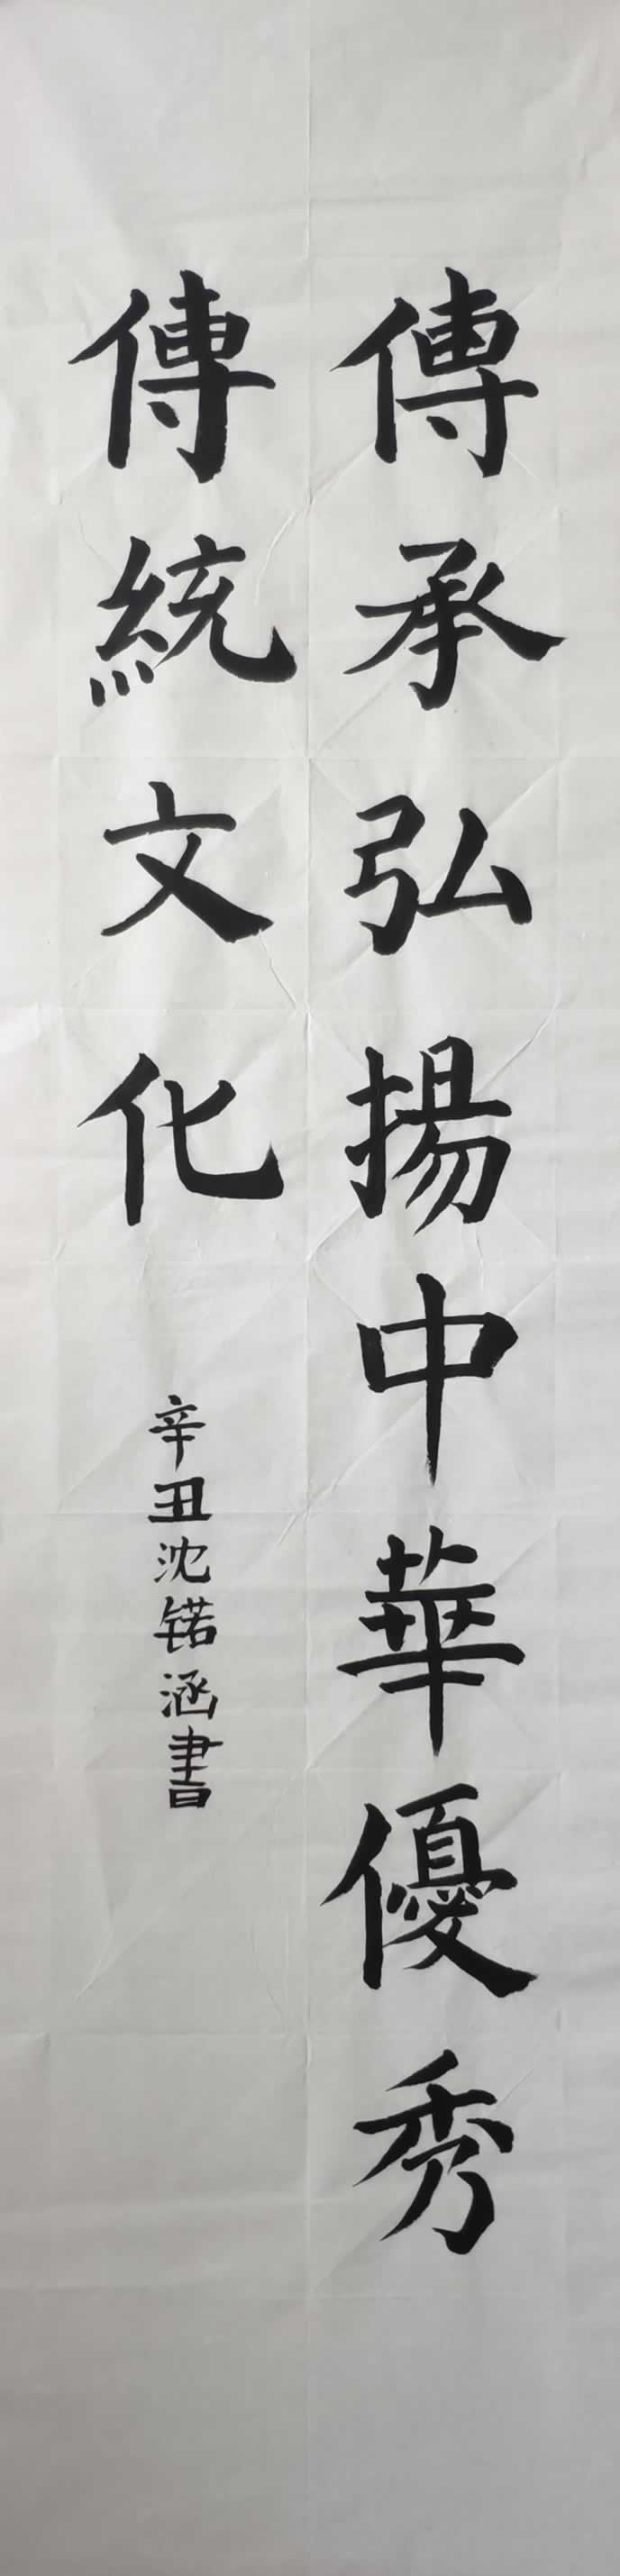 傳承弘揚中華優秀
傳統文化
辛丑沈锘涵書